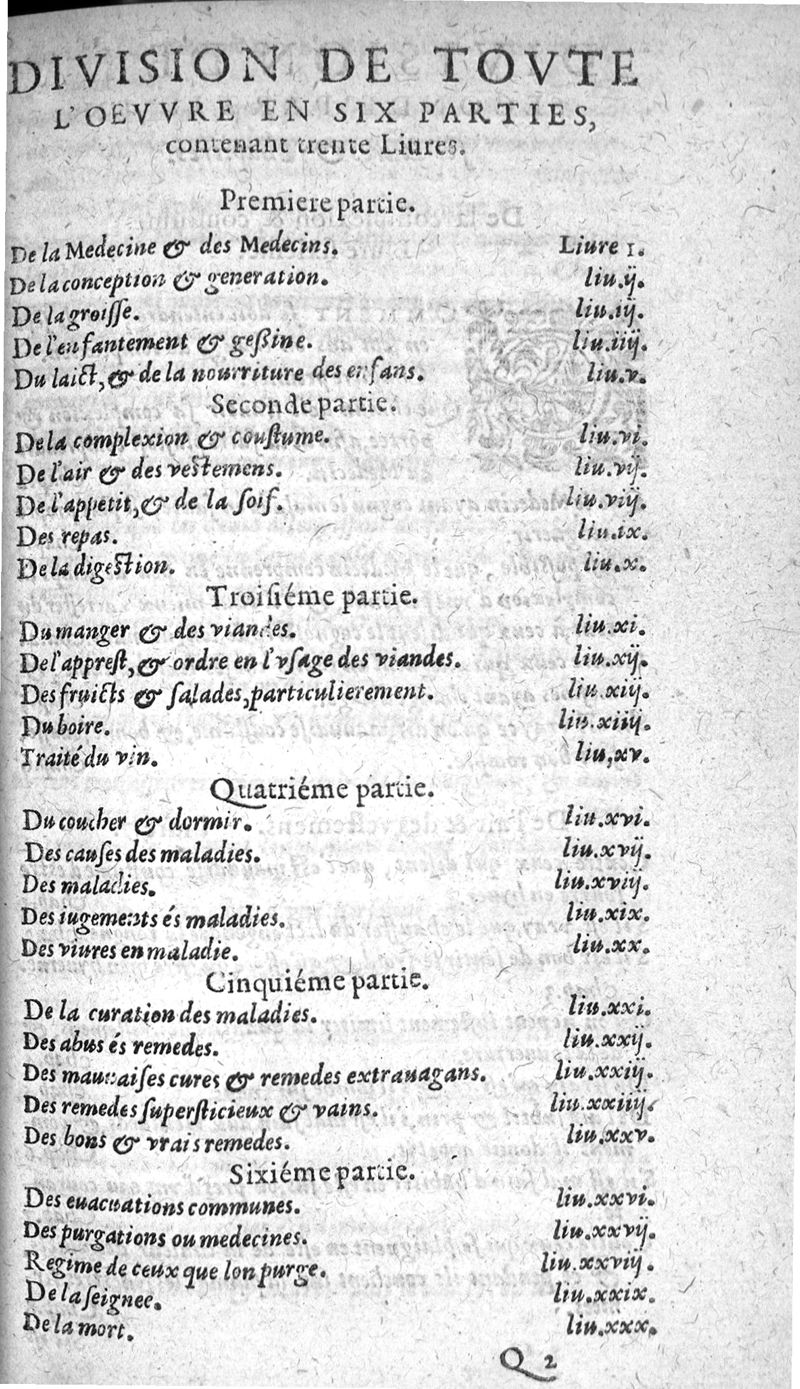 DIVISION DE TOVTE
L'OEVVRE EN SIX PARTIES,
contenant trente Liures.
Premiere partie.
De la Medecine & des Medecins. Liure 1.
De la conception & generation. liu.ij.
De la groisse. liu.iij.
De l'enfantement & gesine. liu.iiij.
Du laict, & de la nourriture des enfans. liu.v.
Seconde partie.
De la complexion & coustume. liu.vi.
De l'air & des vestemens. liu.vij.
De l'appetit, & de la soif. liu.viij.
Des repas. liu.ix.
De la digestion. liu.x.
Troisiéme partie.
Du manger & des viandes. liu.xi.
De l'apprest, & ordre en l'vsage des viandes. liu.xij.
Des fruicts & salades, particulierement. liu.xiij.
Du boire. liu.xiiij.
Traité du vin. liu.xv.
Quatriéme partie.
Du coucher & dormir. liu.xvi.
Des causes des maladies. liu.xvij.
Des maladies. liu.xviij.
Des iugements és maladies. liu.xix.
Des viures en maladie. liu.xx.
Cinquiéme partie.
De la curation des maladies. liu.xxi.
Des abus és remedes. liu.xxij.
Des mauuaises cures & remedes extrauagans. liu.xxiij.
Des remedes supersticieux & vains. liu.xxiiij.
Des bons & vrais remedes. liu.xxv.
Sixiéme partie.
Des euacuations communes. liu.xxvi.
Des purgations ou medecines. liu.xxvij.
Regime de ceux que lon purge. liu.xxviij.
De la seignee. liu.xxix.
De la mort. liu.xxx.
Q 2